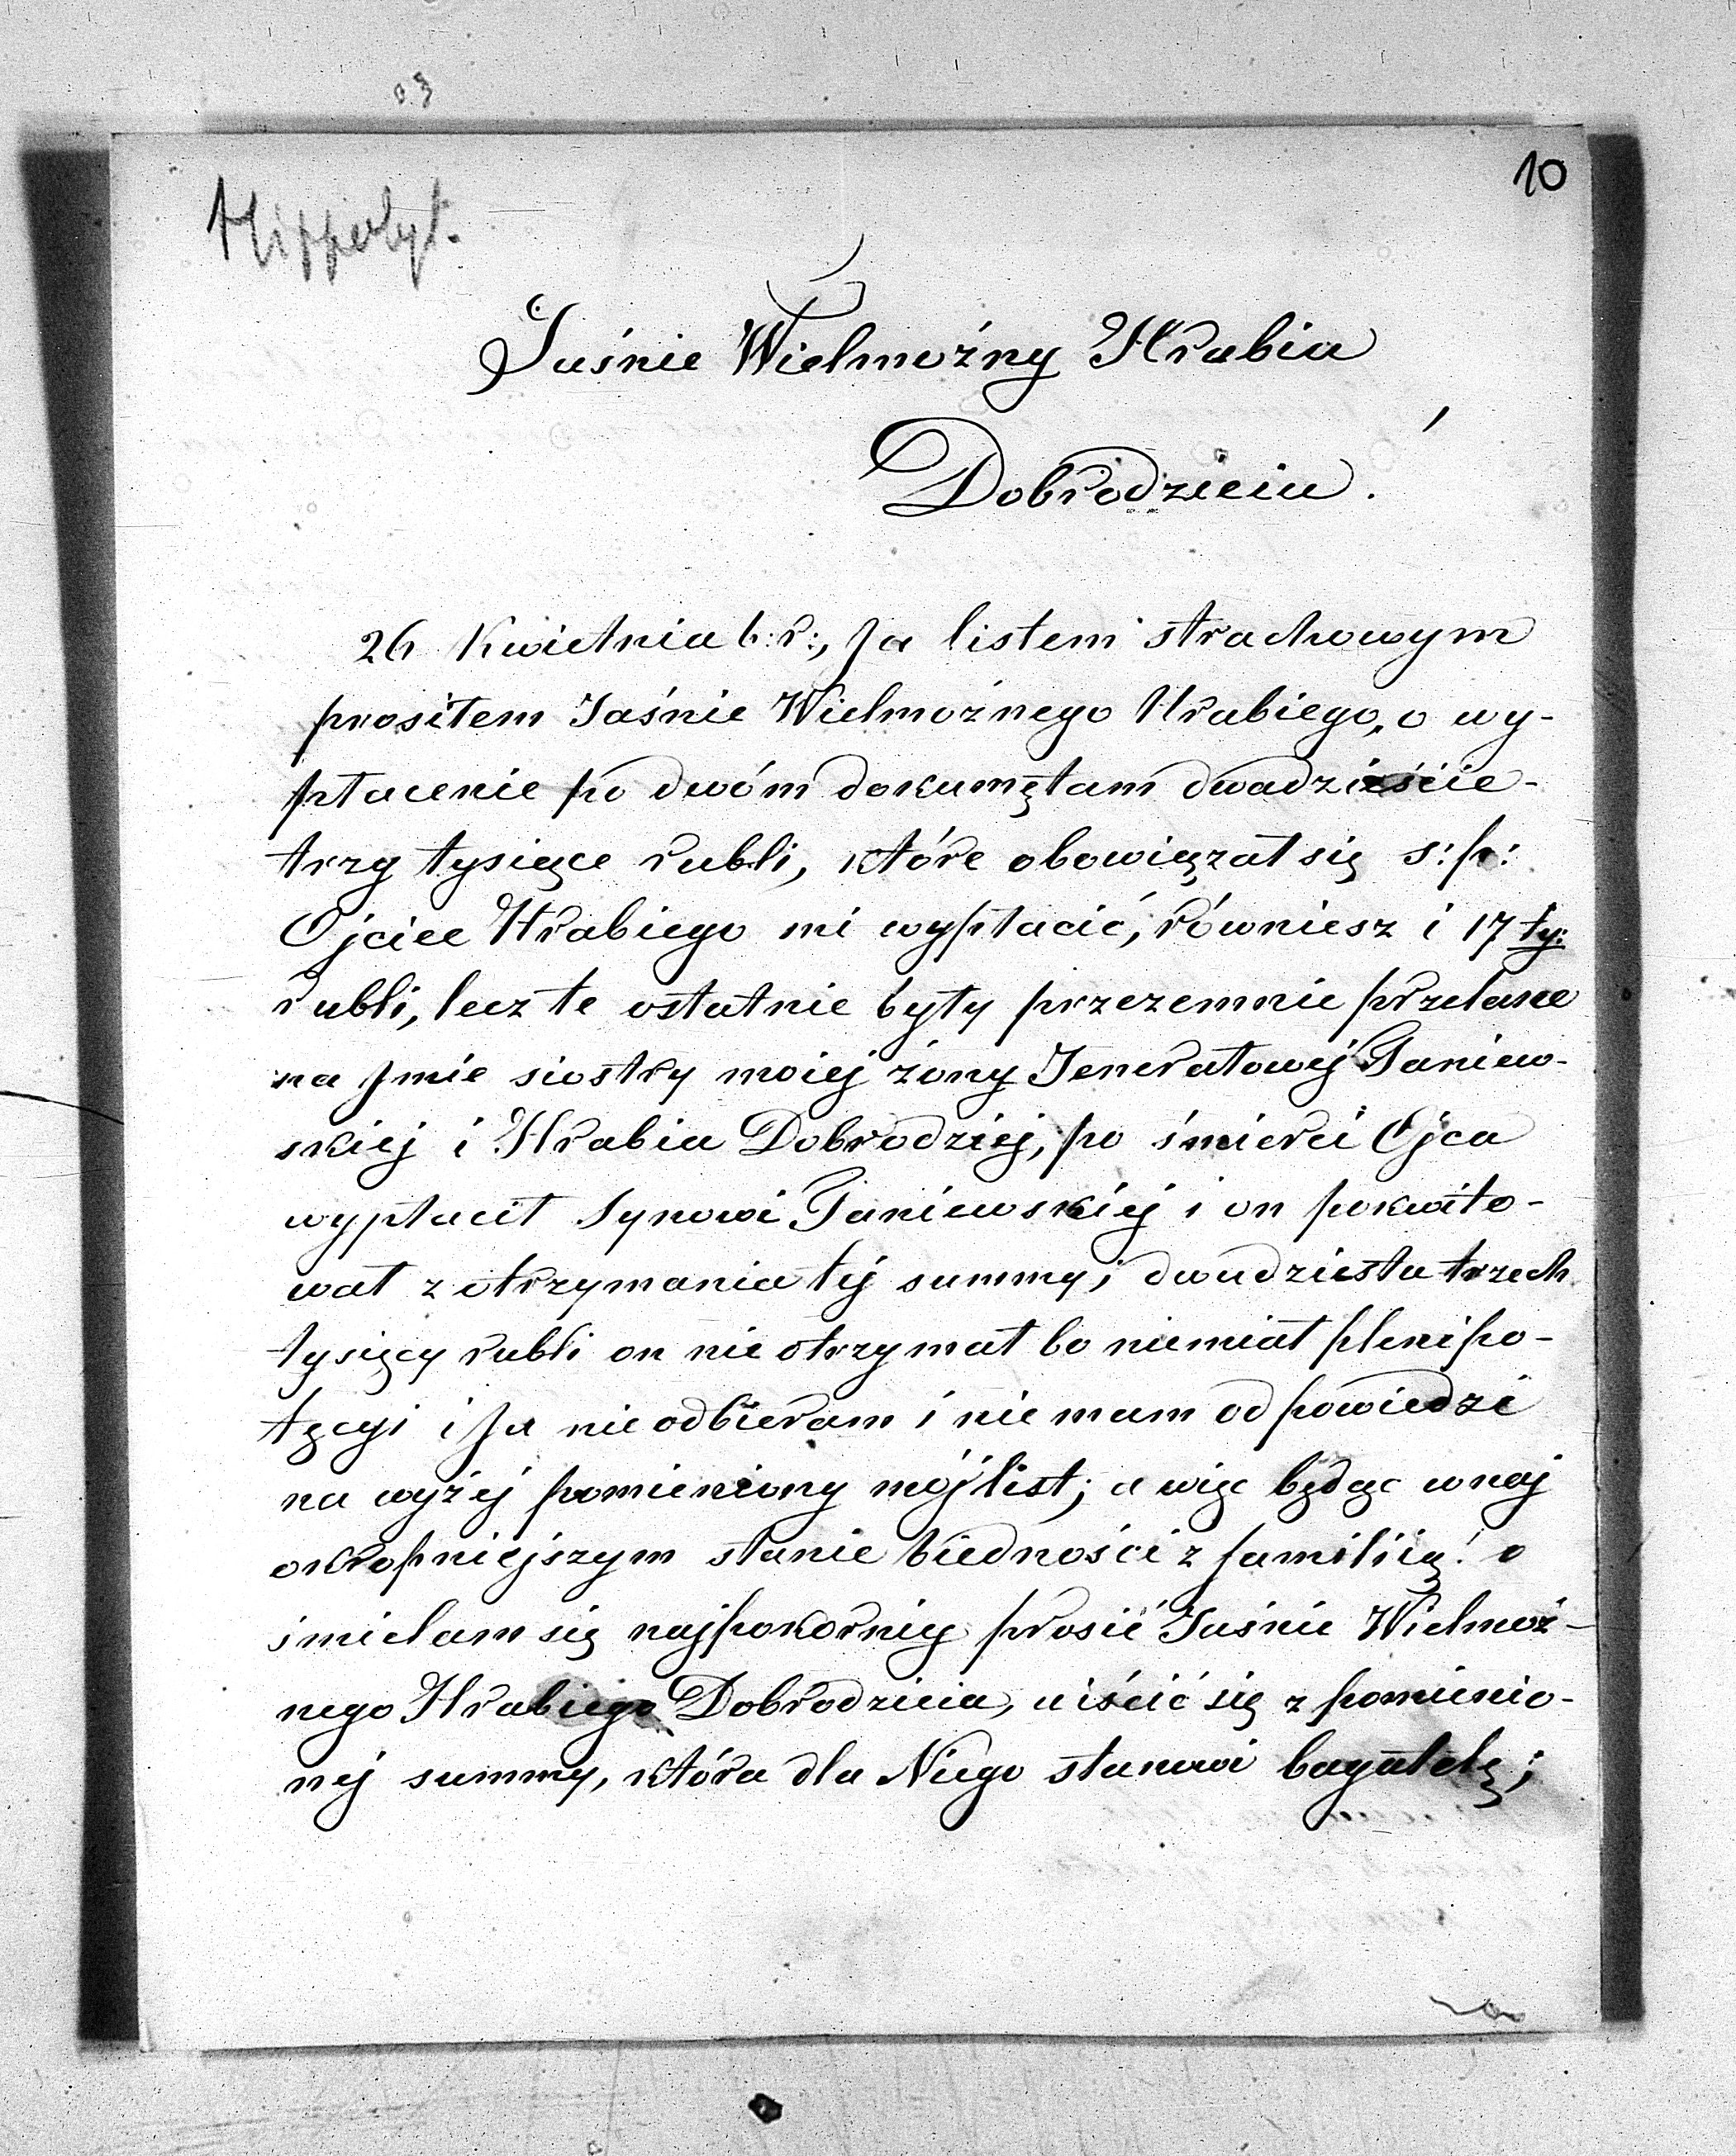 10
Hippolyt.
Jaśnie Wielmożny Hrabia
Dobrodzieiu!
26 Kwietnia b:r:, Ja listem strachowym
prosiłem Jaśnie Wielmożnego Hrabiego, o wy-
płacenie po dwóm dokumętam dwadzieście-
trzy tysięce rubli, które obowięzał się ś:p:
Ojciec Hrabiego mi wypłacić, równiesz i 17 ty:
rubli, lecz te ostatnie były przezemnie przelane
na Jmie siostry moiej żony Jenerałowej Ganiew-
skiej i Hrabia Dobrodziej, po śmierci Ojca
wypłacił synowi Ganiewskiej i on pokwito-
wał z otrzymania tej summy; dwudziestu trzech
tysięcy rubli on nie otrzymał bo niemiał plenipo-
tęcyi i Ja nie odbieram i nie mam odpowiedzi
na wyżej pomieniony mój list; a więc będąc w naj
okropniejszym stanie biedności z familią! o
śmielam się najpokorniej prosić Jaśnie Wielmoż-
nego Hrabiego Dobrodzieia, uiścić się z pomienio-
nej summy, która dla Niego stanowi bagatelę;